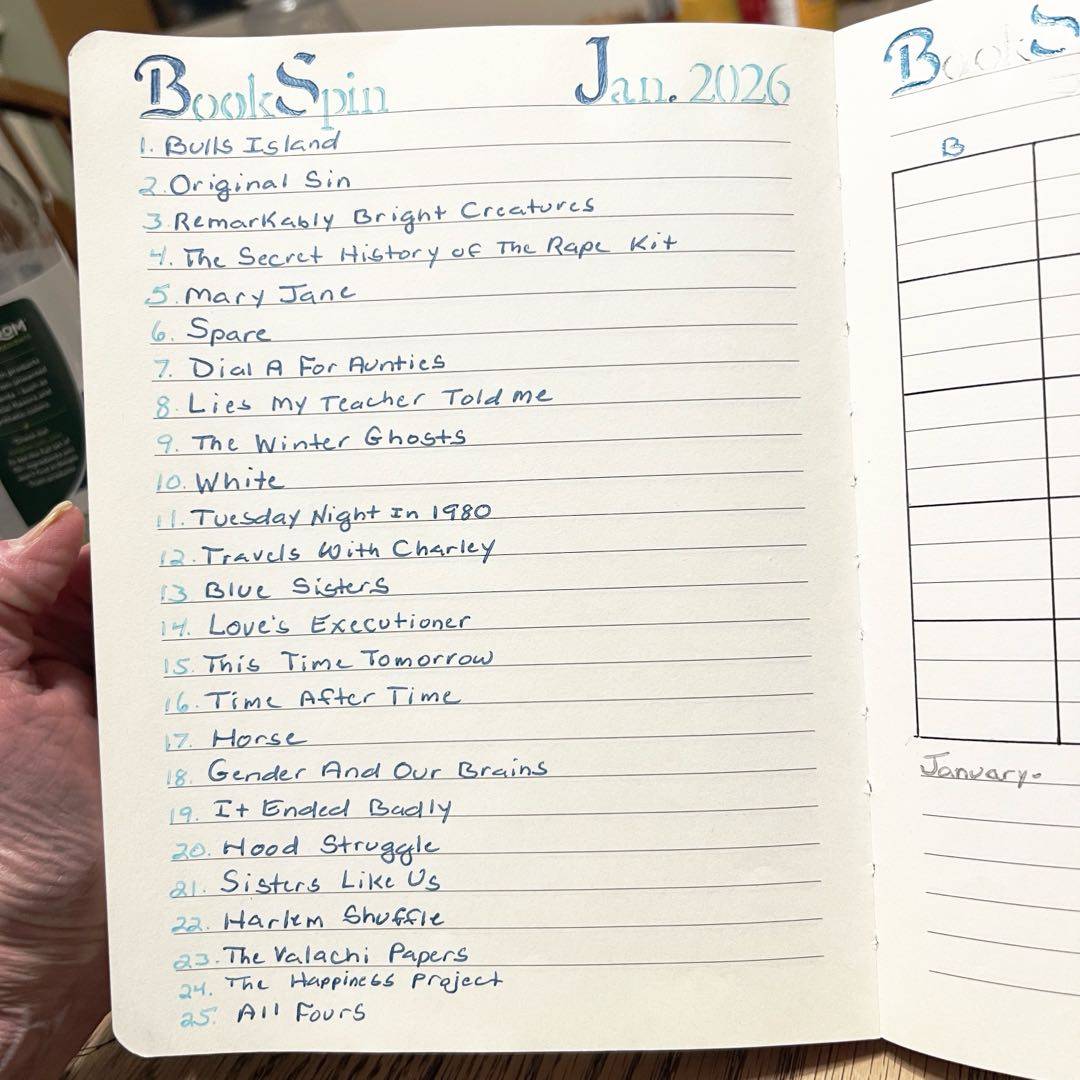 BookSpin Jan. 2026
1. Bulls Island
2. Original Sin
3. Remarkably Bright Creatures
4. The Secret History of The Rape Kit
5. Mary Jane
6. Spare
7. Dial A For Aunties
8. Lies My Teacher Told me
9. The Winter Ghosts
10. White
11. Tuesday Night In 1980
12. Travels With Charley
13 Blue Sisters
14. Love's Executioner
15. This Time Tomorrow
16. Time After Time
17. Horse
18. Gender And Our Brains
19. It Ended Badly
20. Hood Struggle
21. Sisters Like Us
22. Harlem Shuffle
23. The Valachi Papers
24. The Happiness Project
25. All Fours
BookS
B
January.